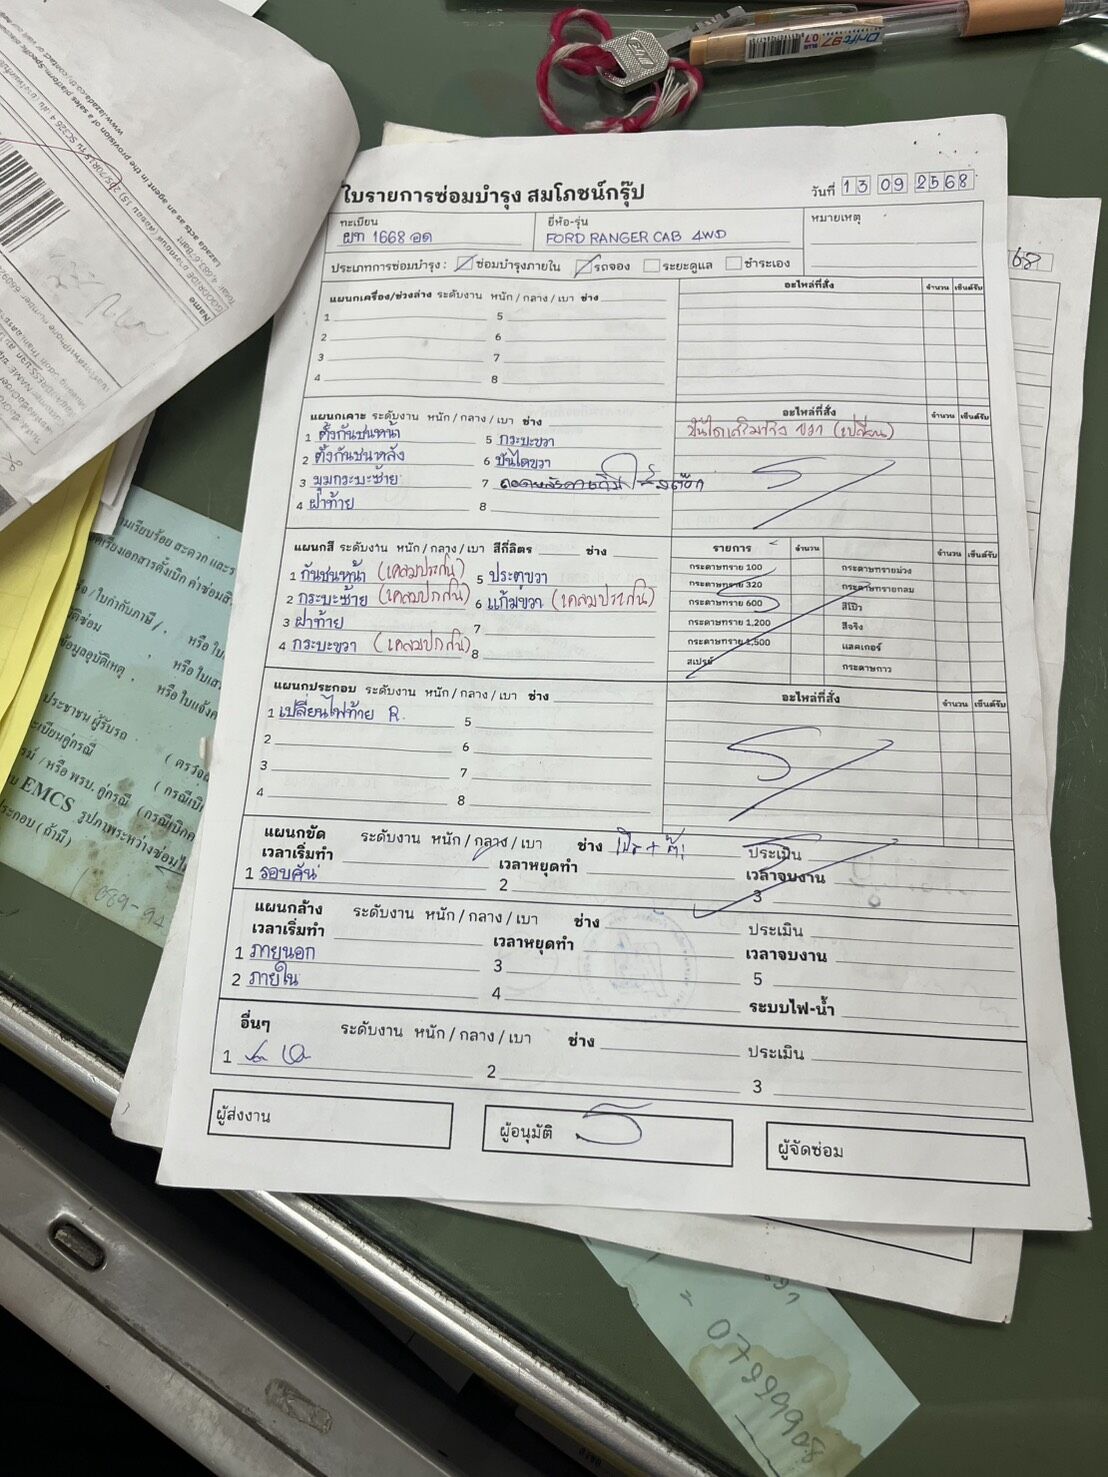 ใบรายการซ่อมบำรุง สมโภชน์กรุ๊ป
วันที่ 13 09 2568
ทะเบียน ผท 1668 อด
ยี่ห้อ-รุ่น FORD RANGER CAB 4WD
หมายเหตุ
ประเภทการซ่อมบำรุง : ซ่อมบำรุงภายใน รถจอง ระยะดูแล ชำระเอง
แผนกเครื่อง/ช่วงล่าง ระดับงาน หนัก / กลาง / เบา ช่าง
อะไหล่ที่สั่ง จำนวน เซ็นต์รับ
1 5
2 6
3 7
4 8
แผนกเคาะ ระดับงาน หนัก / กลาง / เบา ช่าง
อะไหล่ที่สั่ง จำนวน เซ็นต์รับ
1 ตั้งกันชนหน้า 5 กระบะขวา
2 ตั้งกันชนหลัง 6 บันไดขวา
3 มุมกระบะซ้าย 7
4 ฝาท้าย 8
แผนกสี ระดับงาน หนัก / กลาง / เบา สีกี่ลิตร ช่าง
รายการ จำนวน จำนวน เซ็นต์รับ
1 กันชนหน้า (เคลมประกัน) 5 ประตูขวา
2 กระบะซ้าย (เคลมประกัน) 6 แก้มขวา (เคลมประกัน)
3 ฝาท้าย 7
4 กระบะขวา (เคลมประกัน) 8
กระดาษทราย 100 กระดาษทรายม่วง
กระดาษทราย 320 กระดาษทรายกลม
กระดาษทราย 600 สีโป๊ว
กระดาษทราย 1,200 สีจริง
กระดาษทราย 1,500 แลคเกอร์
สเปรย์ กระดาษกาว
แผนกประกอบ ระดับงาน หนัก / กลาง / เบา ช่าง
อะไหล่ที่สั่ง จำนวน เซ็นต์รับ
1 เปลี่ยนไฟท้าย R. 5
2 6
3 7
4 8
แผนกขัด ระดับงาน หนัก / กลาง / เบา ช่าง ประเมิน
เวลาเริ่มทำ เวลาหยุดทำ เวลาจบงาน
1 รอบคัน 2 3
แผนกล้าง ระดับงาน หนัก / กลาง / เบา ช่าง ประเมิน
เวลาเริ่มทำ เวลาหยุดทำ เวลาจบงาน
1 ภายนอก 3 5
2 ภายใน 4 ระบบไฟ-น้ำ
อื่นๆ ระดับงาน หนัก / กลาง / เบา ช่าง ประเมิน
1 2 3
ผู้ส่งงาน ผู้อนุมัติ ผู้จัดซ่อม